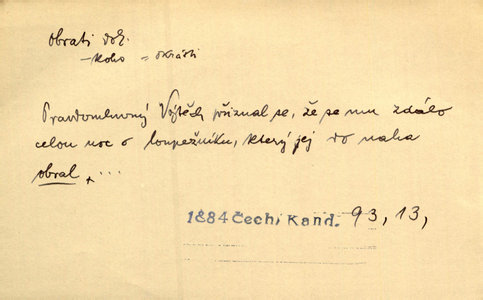 obrati dok.
– koho = okrásti
Pravdomluvný Vojtěch přiznal se, že se mu zdálo
celou noc o loupežníku, který jej do naha
obral, ...
1884 Čech, Kand. 93, 13,